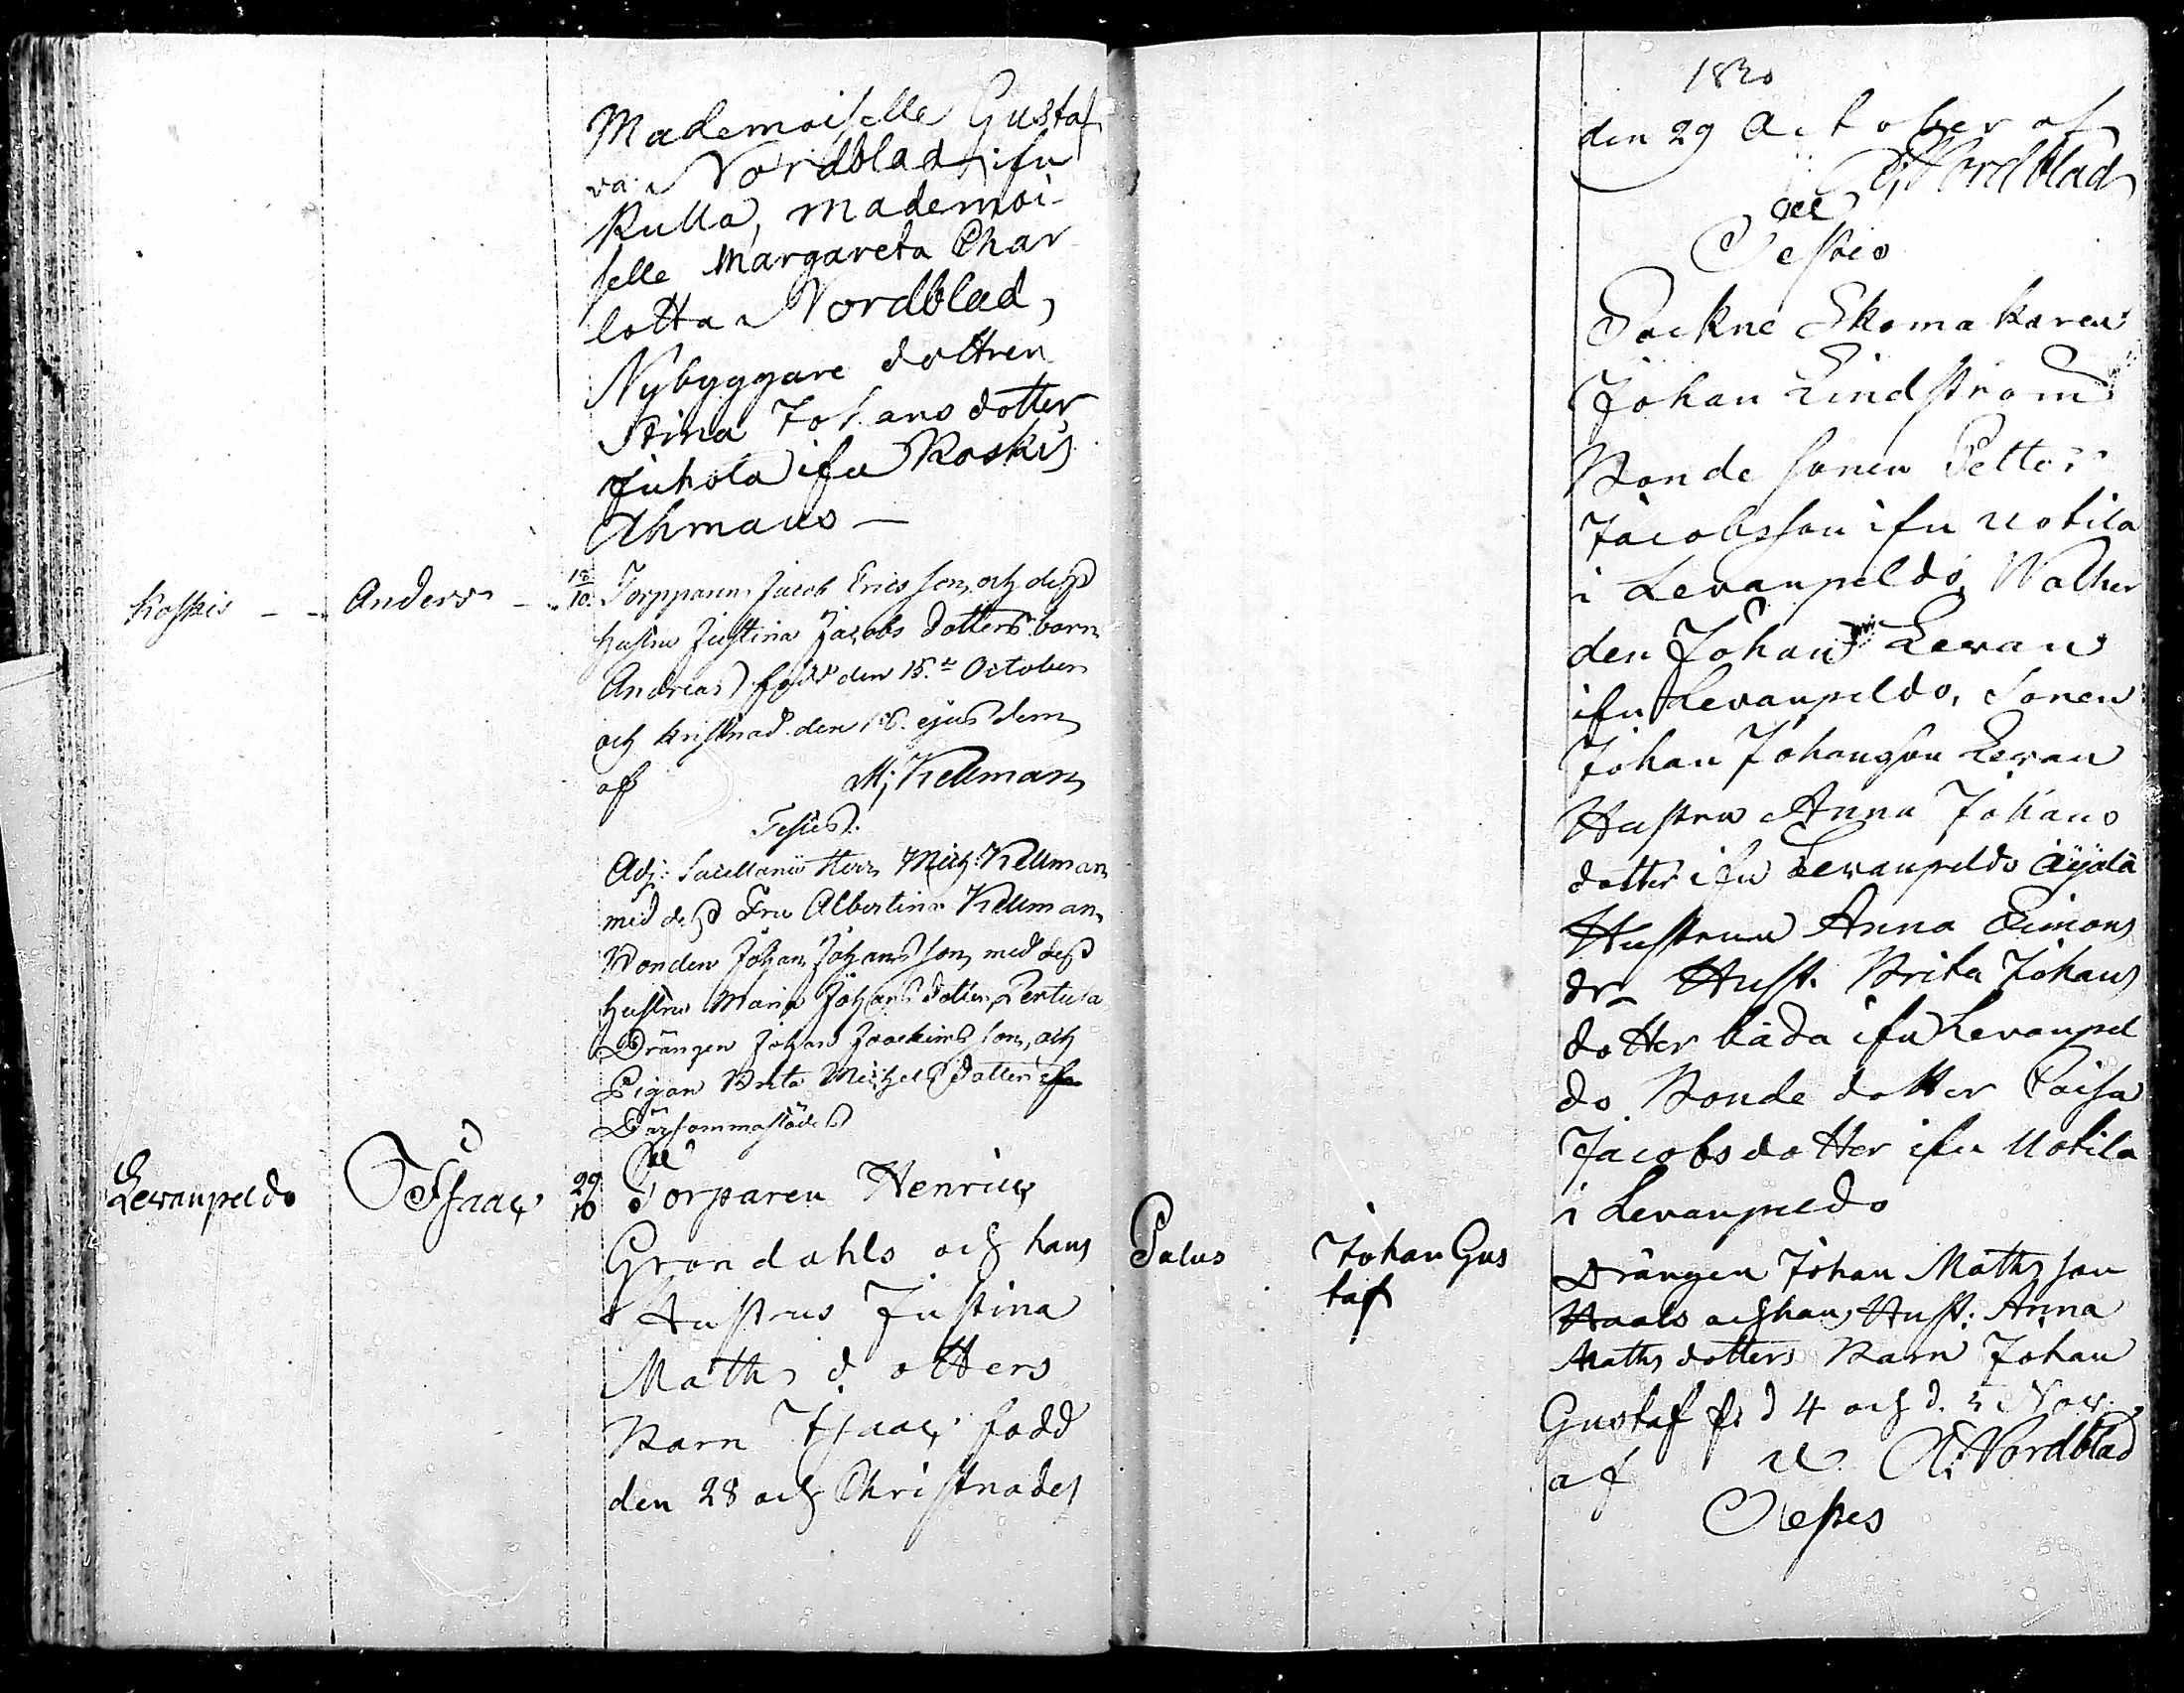 Mademoiselle Gustaf
va Nordblad ifn
Kulla, Mademoi-
selle Margareta Char
lotta Nordblad,
Nybyggare dottren
Stina Johans dotter
Juhola ifn Koskis
Ahmaus —
Koskis - - Anders - 18/10. Torpparns Jacob Ericsson, och dess
hustru Justina Jacobs dotters barn
Andreas) född den 15.de October
och kristnad den 18. ejusdem
af M; Kellman
Testes.
Adj: Sacellanus Herr Mich: Kellman
med dess Fru Albertina Kellman,
Bonden Johan Johansson, med dess
hustru Maria Johans dotter, Pentula
Drängen Johan Joackims son, och
Pigan Brita Michels dotter ifn
Därsammastädes
Levanpeldo Isaac 29/10 Torparen Henric
Grondahls och hans
Hustrus Justina
Maths dotters
Barn Isaac född
den 28 och Christnades
1820
den 29 October af
Nordblad
Testes
Sockne Skomakaren
Johan Lindström
Bonde sonen Petter
Jacobsson ifn Uotila
i Levanpeldo, Wather
den Johan Levan
ifn Levanpeldo, Sonen
Johan Johansson Levan
Hustru Anna Johans
dotter ifn Levanpeldo Äijälä
Hustrun Anna Simons
dr Hust. Brita Johans
dotter båda ifn Levanpel
do Bonde dotter Caisa
Jacobsdotter ifn Uotila
i Levanpeldo
Palus Johan Gus
taf
Drängen Johan Mathsson
Haals och hans Hust: Anna
Maths dotters Barn Johan
Gustaf f. d 4 och d. 5 Nov.
af Nordblad
Testes